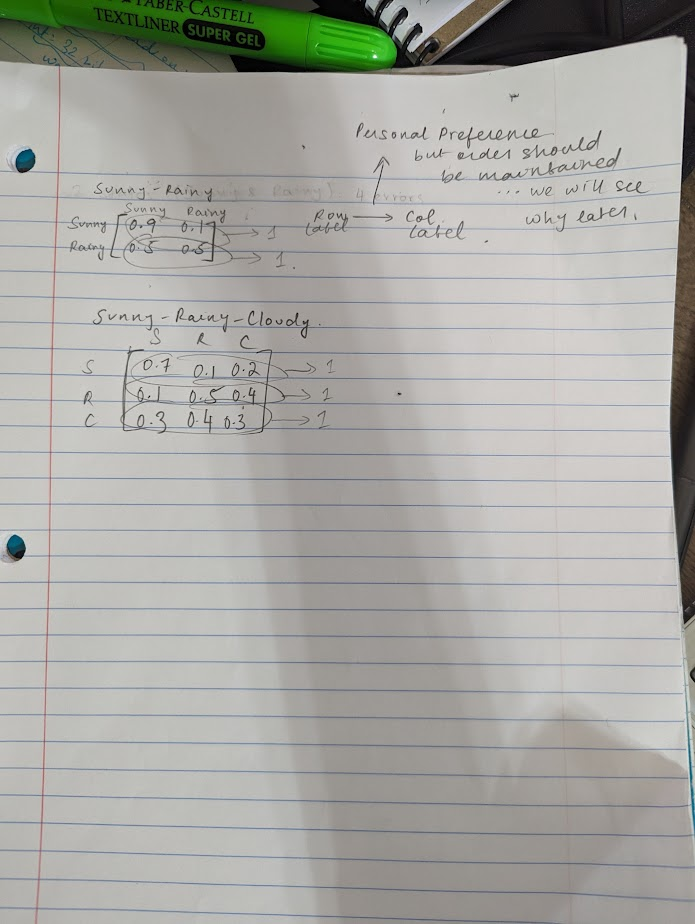 FABER-CASTELL
TEXTLINER SUPER GEL
Personal Preference
but order should
be maintained
... we will see
why later.
Sunny-Rainy
Sunny Rainy
Sunny [0.9 0.1] → 1
Rainy [0.5 0.5] → 1.
Row Label → Col. Label.
Sunny-Rainy-Cloudy.
S R C
S 0.7 0.1 0.2 → 1
R 0.1 0.5 0.4 → 1
C 0.3 0.4 0.3 → 1